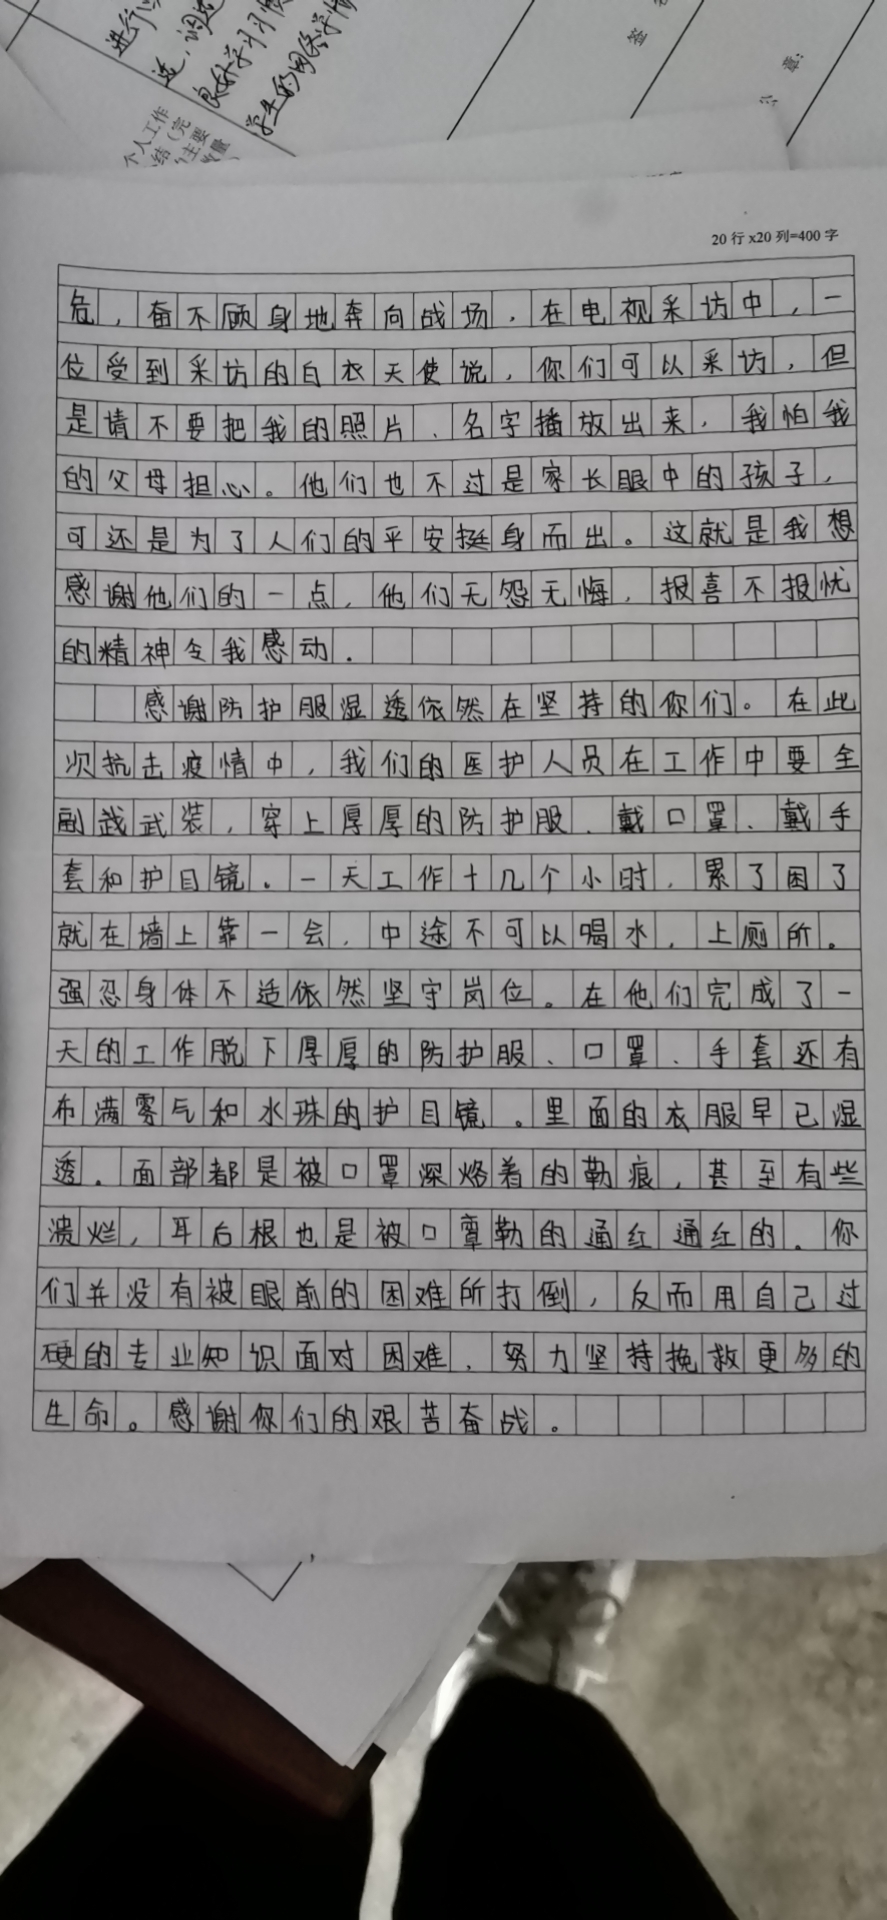 进行
良好学习习惯
学生的网络学情
签
章：
个人工作
结（完
主要
数量
20行x20列=400字
危，奋不顾身地奔向战场，在电视采访中，一
位受到采访的白衣天使说，你们可以采访，但
是请不要把我的照片、名字播放出来，我怕我
的父母担心。他们也不过是家长眼中的孩子，
可还是为了人们的平安挺身而出。这就是我想
感谢他们的一点，他们无怨无悔，报喜不报忧
的精神令我感动．
感谢防护服湿透依然在坚持的你们。在此
次抗击疫情中，我们的医护人员在工作中要全
副武装，穿上厚厚的防护服、戴口罩、戴手
套和护目镜。一天工作十几个小时，累了困了
就在墙上靠一会，中途不可以喝水，上厕所。
强忍身体不适依然坚守岗位。在他们完成了一
天的工作脱下厚厚的防护服、口罩、手套还有
布满雾气和水珠的护目镜。里面的衣服早已湿
透．面部都是被口罩深烙着的勒痕，甚至有些
溃烂，耳后根也是被口罩勒的通红通红的．你
们并没有被眼前的困难所打倒，反而用自己过
硬的专业知识面对困难，努力坚持挽救更多的
生命。感谢你们的艰苦奋战。